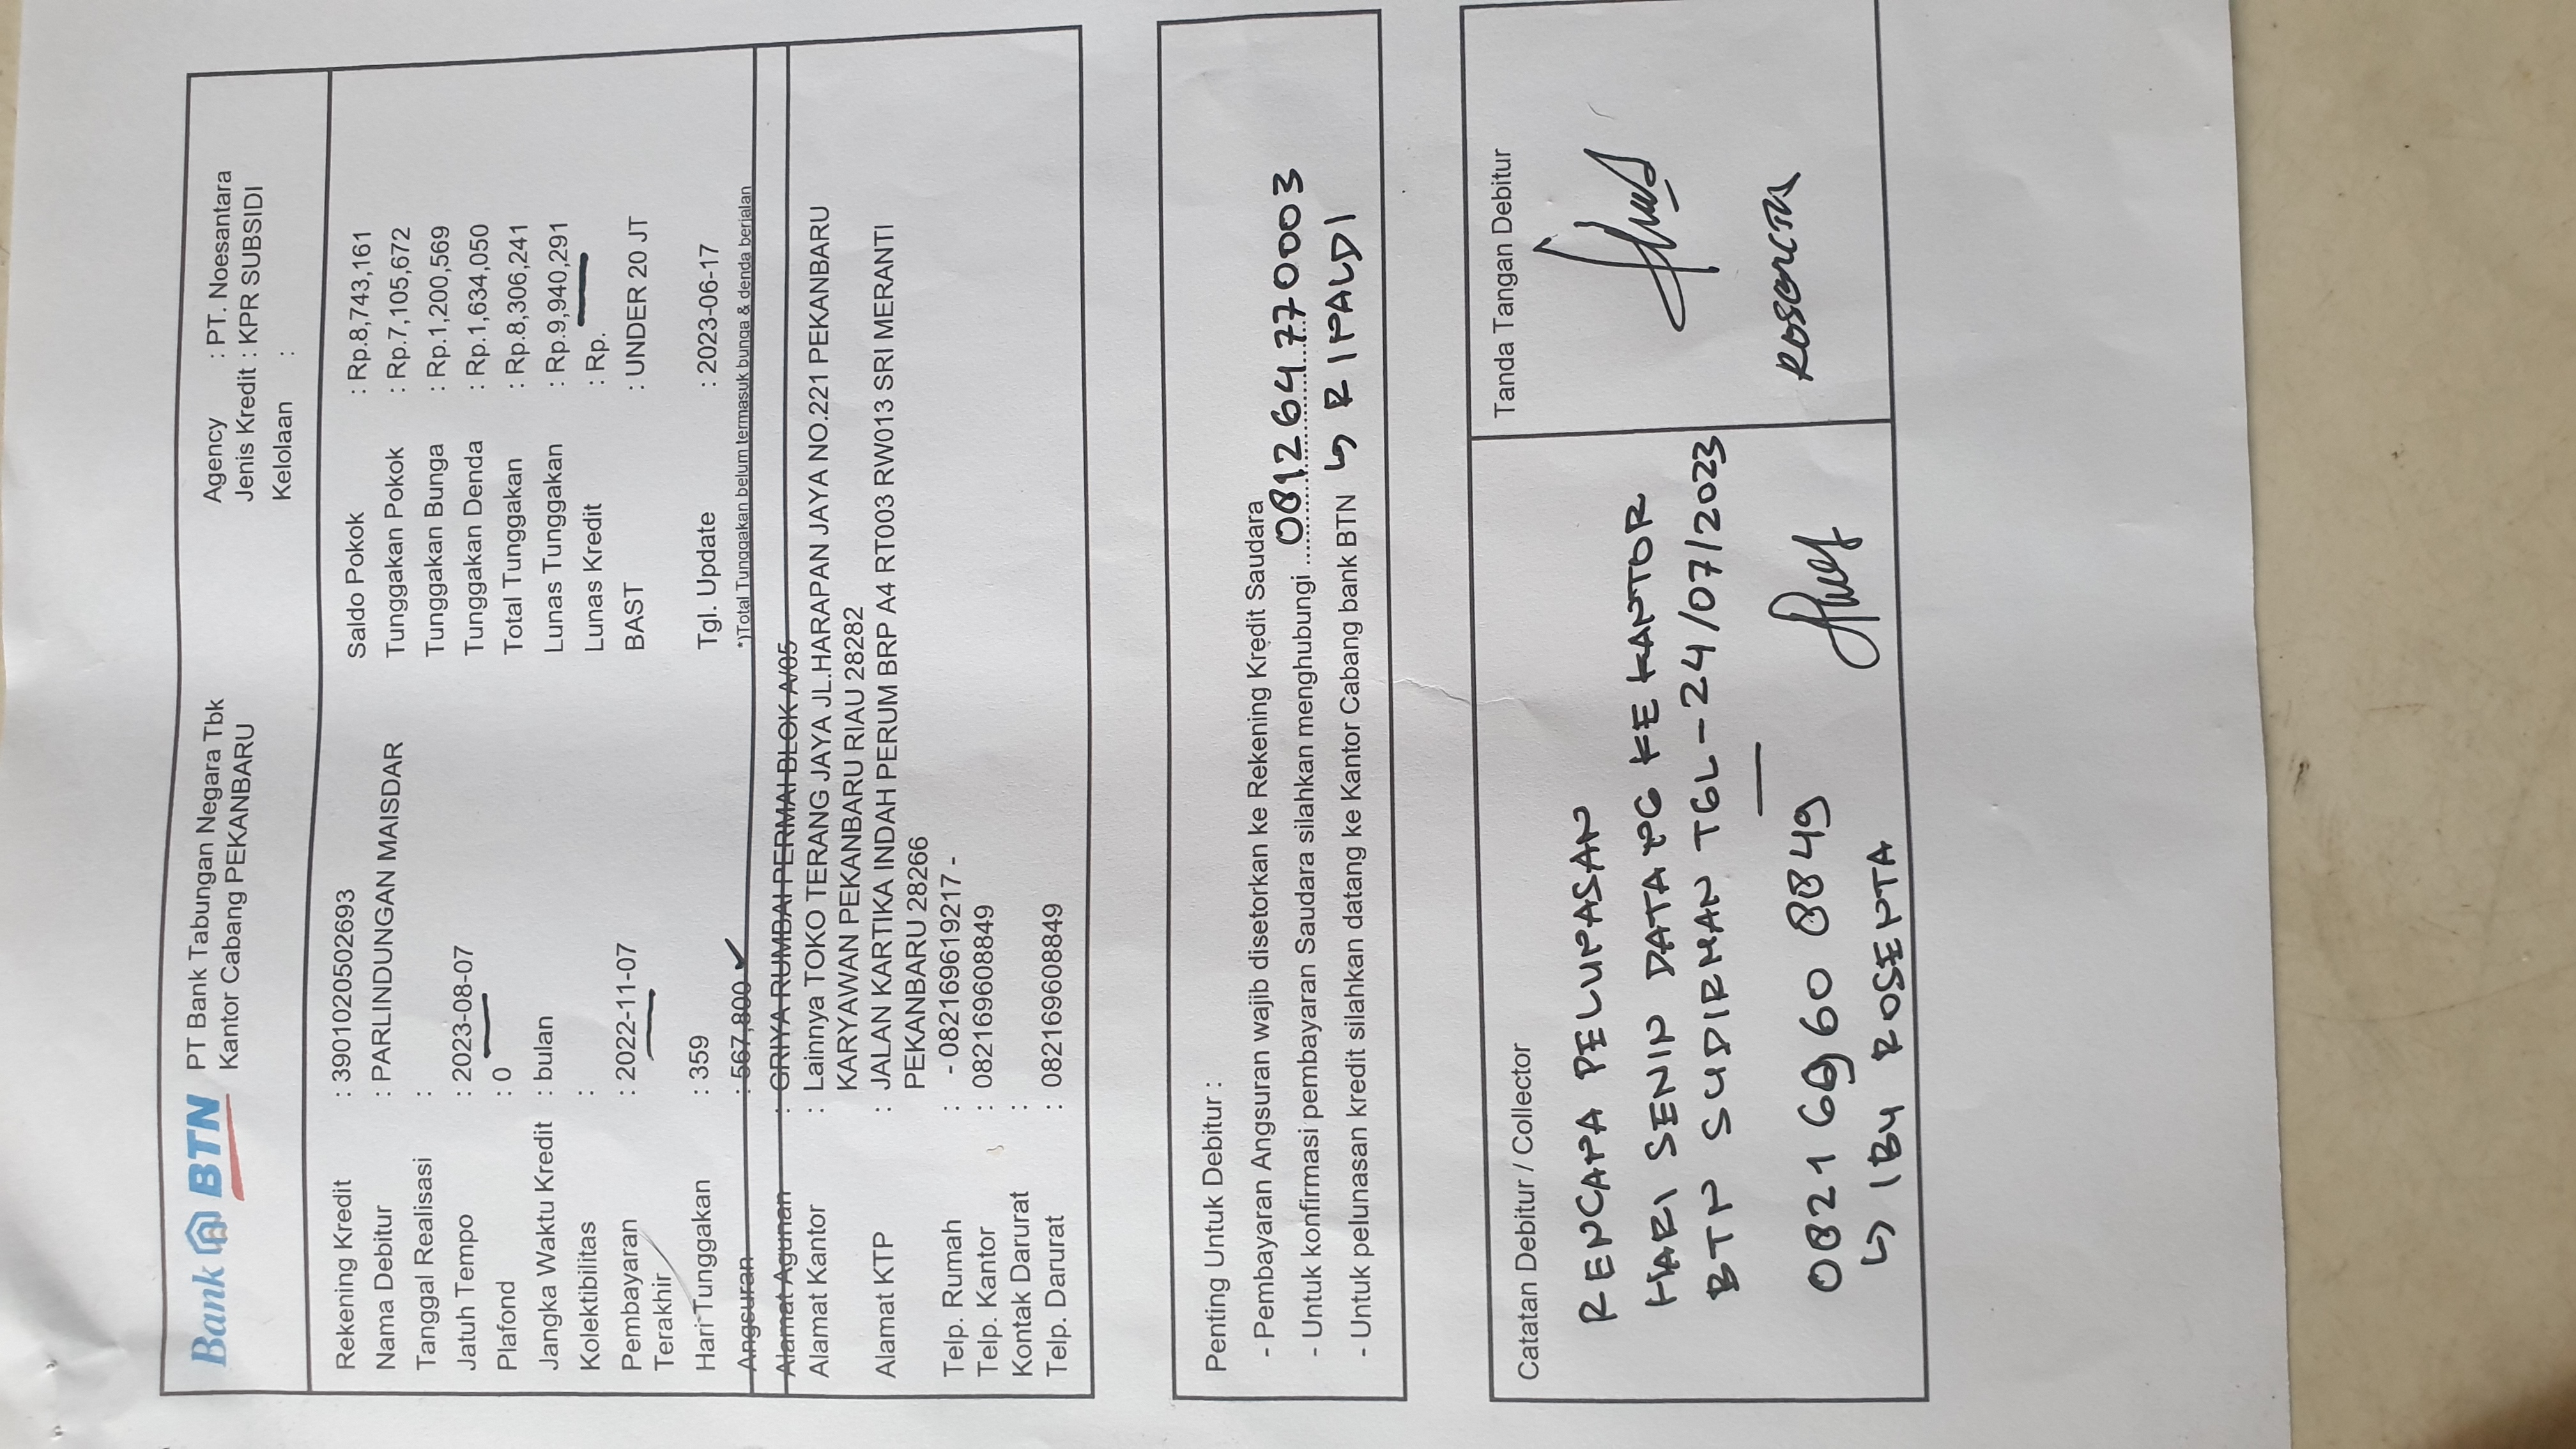 Bank BTN
PT Bank Tabungan Negara Tbk
Kantor Cabang PEKANBARU
Agency : PT. Noesantara
Jenis Kredit : KPR SUBSIDI
Kelolaan :
Rekening Kredit : 3901020502693
Nama Debitur : PARLINDUNGAN MAISDAR
Tanggal Realisasi :
Jatuh Tempo : 2023-08-07
Plafond : 0
Jangka Waktu Kredit : bulan
Kolektibilitas :
Pembayaran Terakhir : 2022-11-07
Hari Tunggakan : 359
Angsuran : 567,800
Saldo Pokok : Rp.8,743,161
Tunggakan Pokok : Rp.7,105,672
Tunggakan Bunga : Rp.1,200,569
Tunggakan Denda : Rp.1,634,050
Total Tunggakan : Rp.8,306,241
Lunas Tunggakan : Rp.9,940,291
Lunas Kredit : Rp.
BAST : UNDER 20 JT
Tgl. Update : 2023-06-17
*)Total Tunggakan belum termasuk bunga & denda berjalan
Alamat Agunan : GRIYA RUMBAI PERMAI BLOK A/05
Alamat Kantor : Lainnya TOKO TERANG JAYA JL.HARAPAN JAYA NO.221 PEKANBARU
KARYAWAN PEKANBARU RIAU 28282
Alamat KTP : JALAN KARTIKA INDAH PERUM BRP A4 RT003 RW013 SRI MERANTI
PEKANBARU 28266
Telp. Rumah : - 082169619217 -
Telp. Kantor : 082169608849
Kontak Darurat :
Telp. Darurat : 082169608849
Penting Untuk Debitur :
- Pembayaran Angsuran wajib disetorkan ke Rekening Kredit Saudara
- Untuk konfirmasi pembayaran Saudara silahkan menghubungi 081264770003
- Untuk pelunasan kredit silahkan datang ke Kantor Cabang bank BTN ↳ RIPALDI
Catatan Debitur / Collector
RENCANA PELUNASAN
HARI SENIN DATANG KE KANTOR
BTN SUDIRMAN TGL-24/07/2023
0821 6960 8849
↳ IBU ROSENTA
Tanda Tangan Debitur
ROSENTA